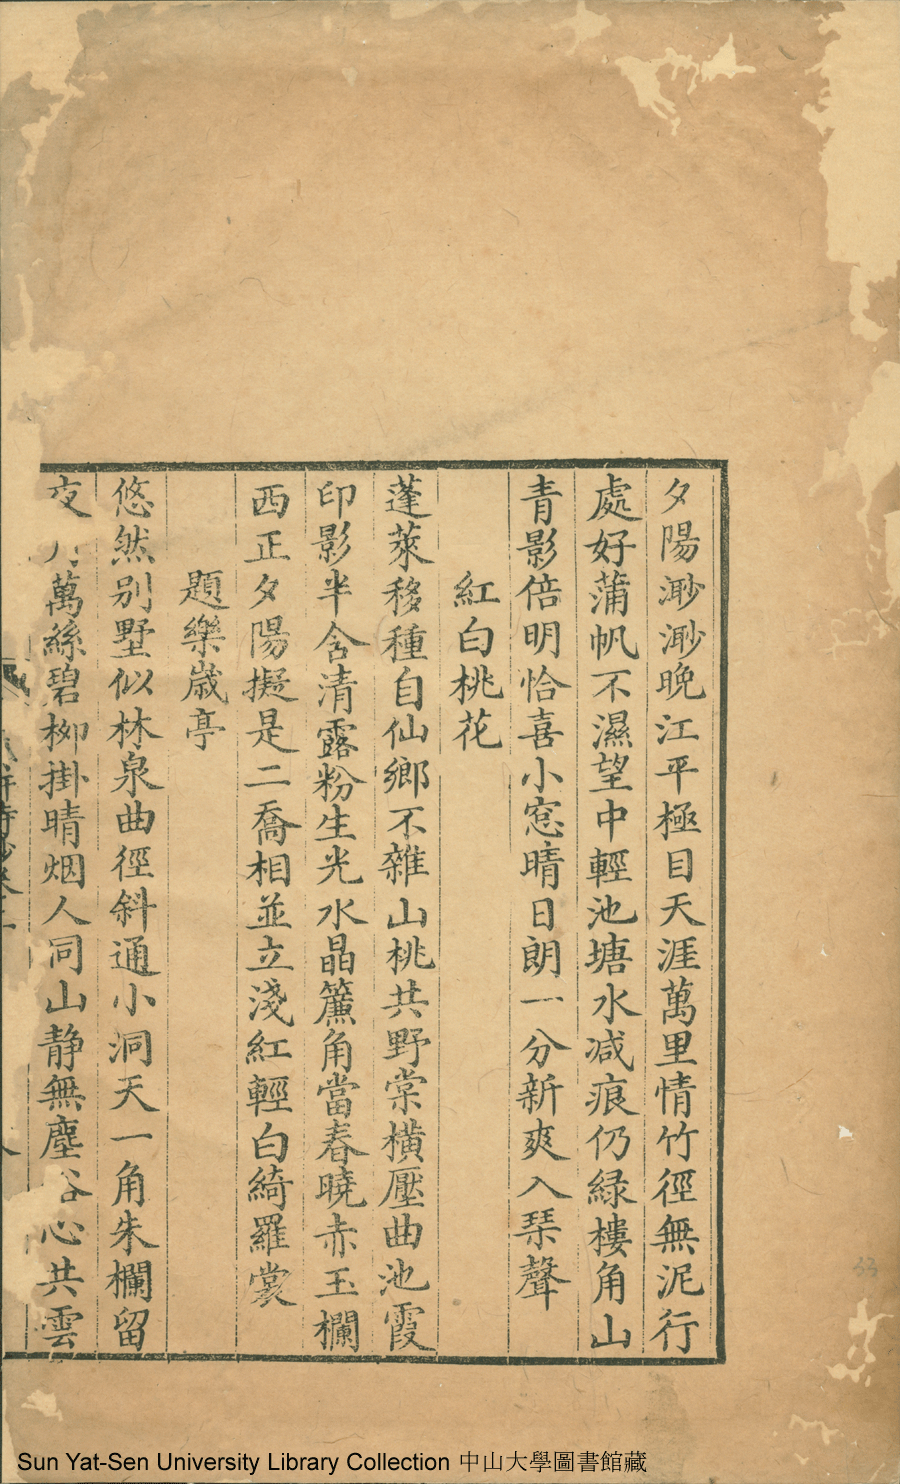 夕陽渺渺晚江平極目天涯萬里情竹徑無泥行
處好蒲帆不濕望中輕池塘水減痕仍緑樓角山
青影倍明恰喜小窓晴日朗一分新爽入琹聲
紅白桃花
蓬萊移種自仙鄉不雜山桃共野棠橫壓曲池霞
印影半含清露粉生光水晶簾角當春曉赤玉欄
西正夕陽擬是二喬相並立淺紅輕白綺羅裳
題樂歲亭
悠然別墅似林泉曲徑斜通小洞天一角朱欄留
夜萬絲碧柳掛晴烟人同山静無塵俗心共雲
Sun Yat-Sen University Library Collection 中山大學圖書館藏